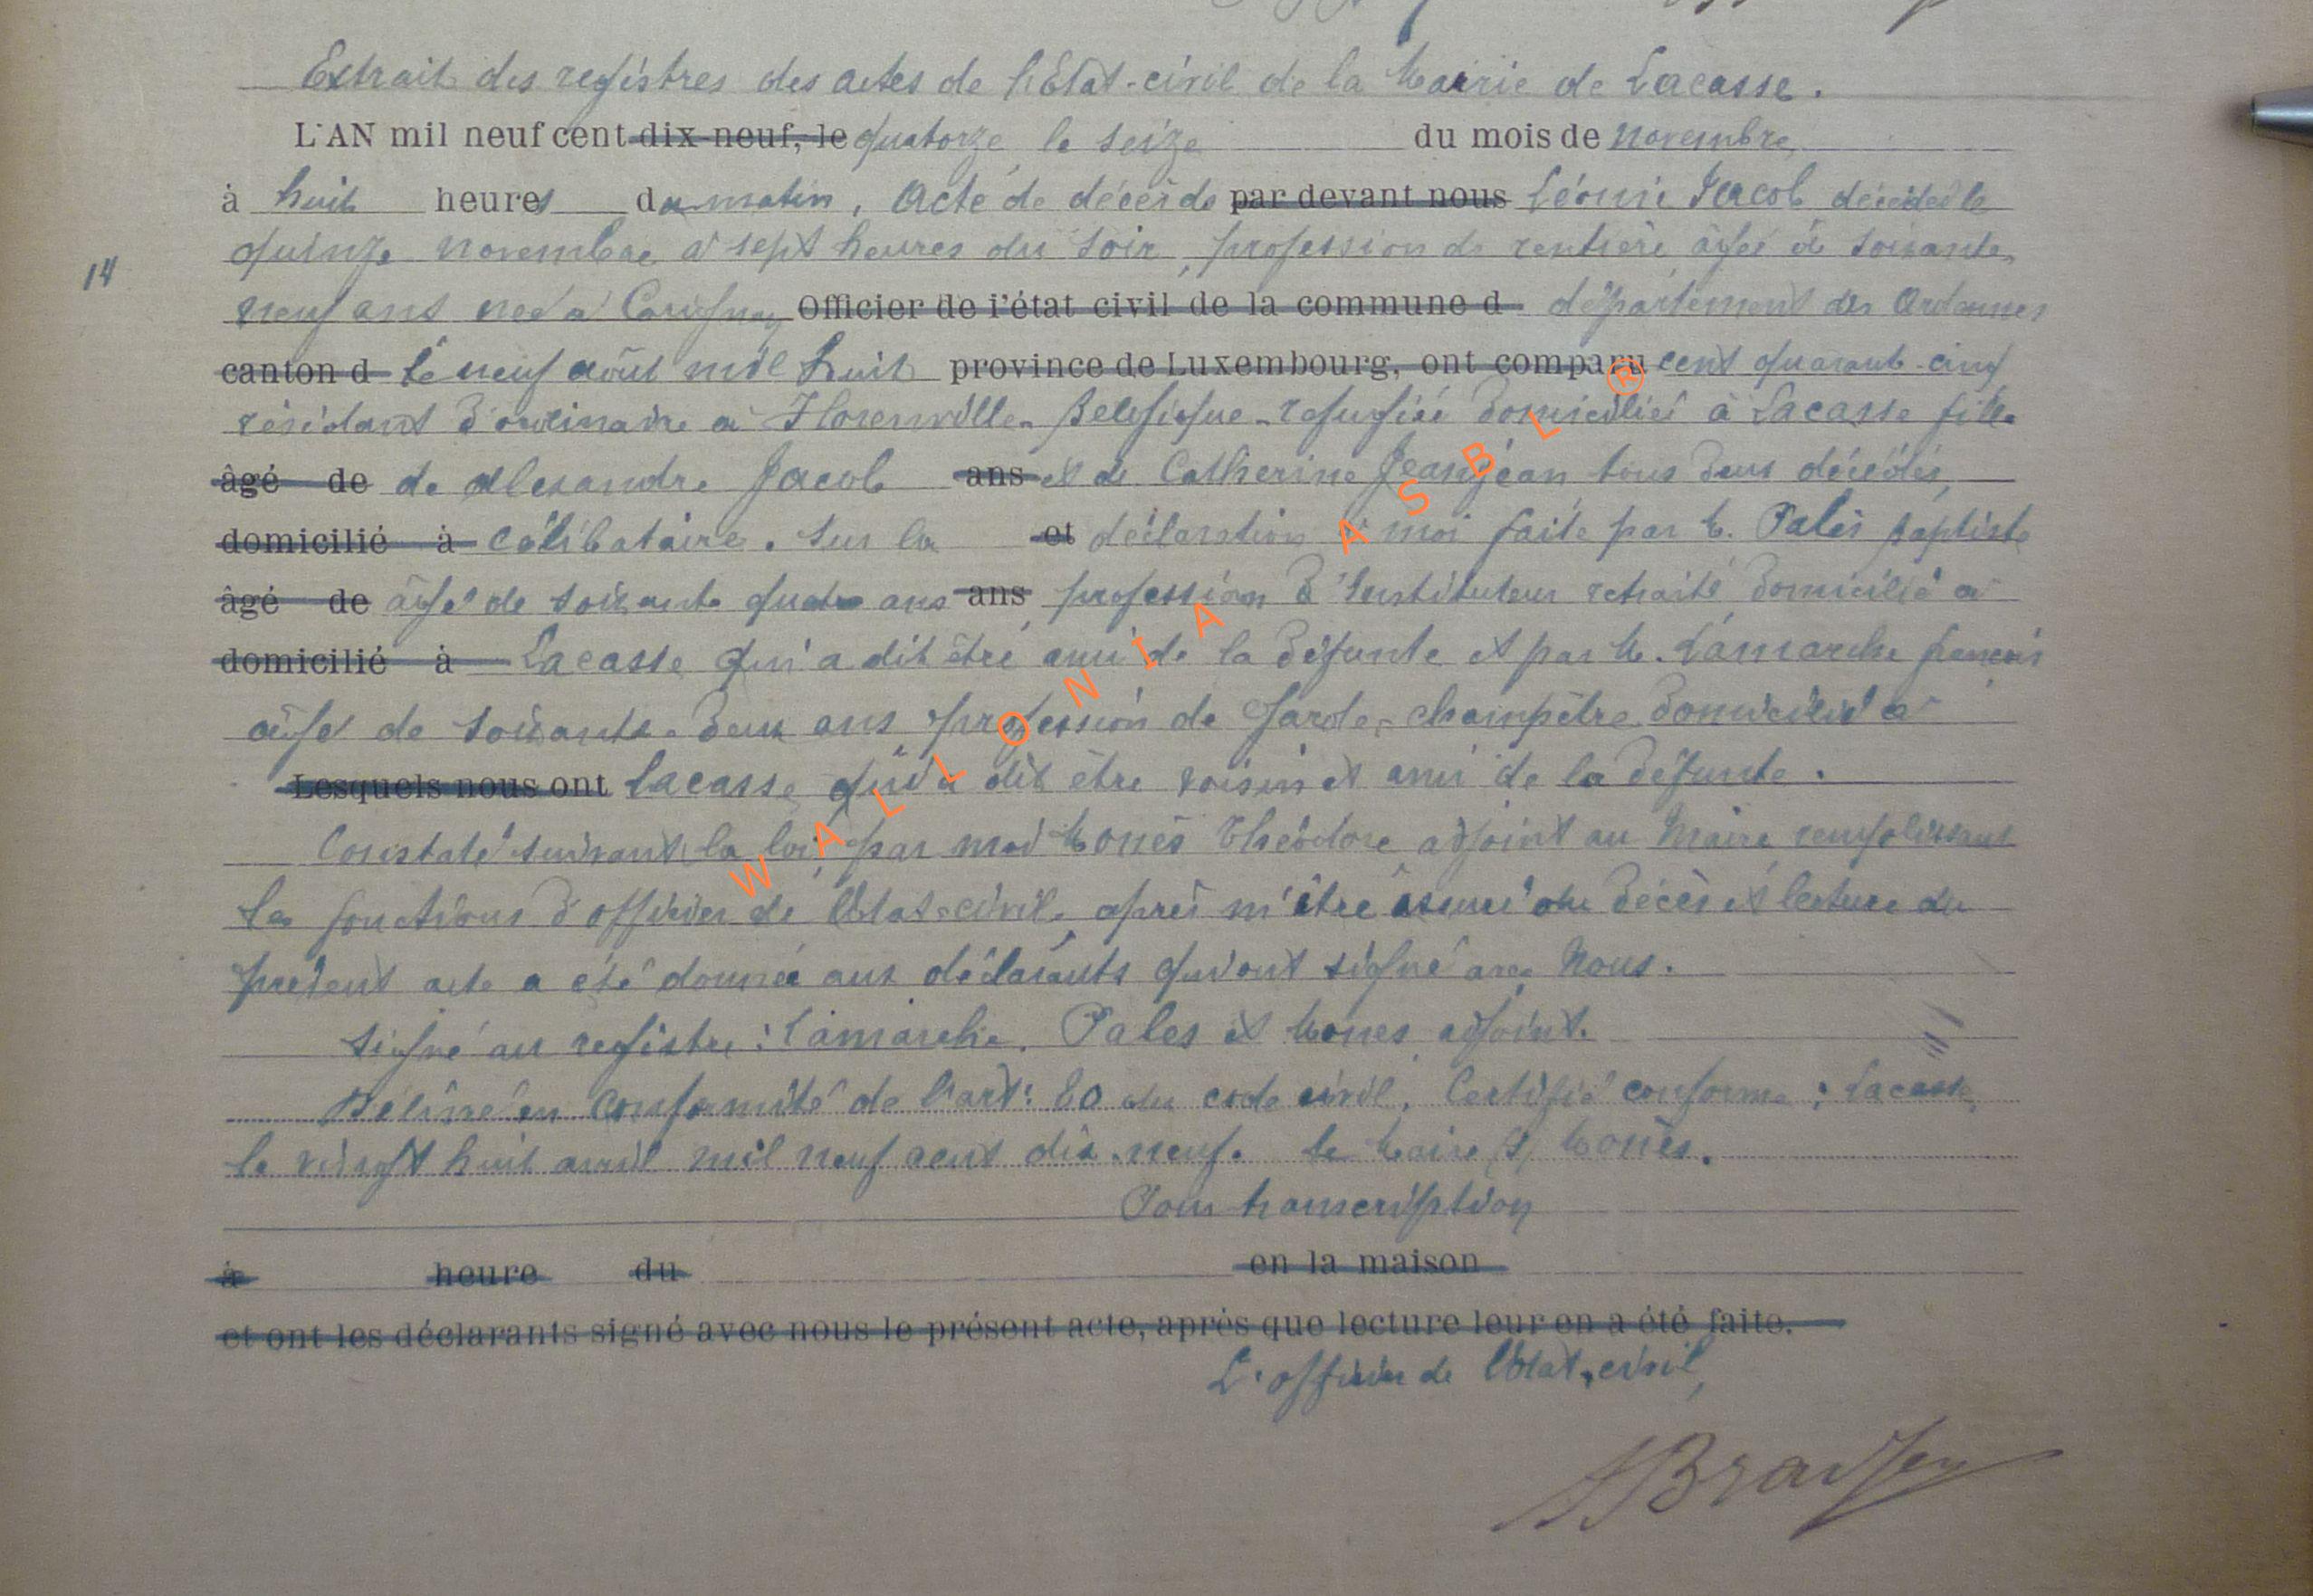 Extrait des registres des actes de l'Etat-civil de la Mairie de Lacasse.
L'AN mil neuf cent dix-neuf, le quatorze le seize du mois de novembre
à huit heures du matin, Acte de décès de par devant nous Léonie Jacob décédée le
14
quinze novembre à sept heures du soir, profession de rentière âgée de soixante
neuf ans née à Carignan Officier de l'état civil de la commune d département des Ardennes
canton d le neuf août mil huit province de Luxembourg, ont comparu cent quarante-cinq
résidant d'ordinaire à Florenville-Belgique-refugiée domiciliée à Lacasse fille
âgé de de Alexandre Jacob ans et de Catherine Jeanjean tous deux décédés,
domicilié à célibataire. Sur la et déclaration à moi faite par M. Palès Baptiste
âgé de âgé de soixante quatre ans ans profession d'Instituteur retraité domicilié à
domicilié à Lacasse qui a dit être ami de la défunte et par M. Lamarche françois
âgé de soixante-deux ans profession de Garde-champêtre domicilié à
Lesquels nous ont Lacasse qui a dit être voisin et ami de la défunte.
Constaté suivant la loi, par moi Monès Théodore adjoint au Maire remplissant
les fonctions d'officier de l'Etat-civil, après m'être assuré du décès et lecture du
présent acte a été donnée aux déclarants qui ont signé avec Nous.
Signé au registre: Lamarche, Palès et Monès adjoint.
Délivré en conformité de l'art: 80 du code civil. Certifié conforme: Lacasse,
le vingt huit avril mil neuf cent dix-neuf. Le Maire (s) Monès.
Pour transcription
à heure du en la maison
et ont les déclarants signé avec nous le présent acte, après que lecture leur en a été faite.
L'officier de l'Etat-civil,
WALLONIA ASBL ®